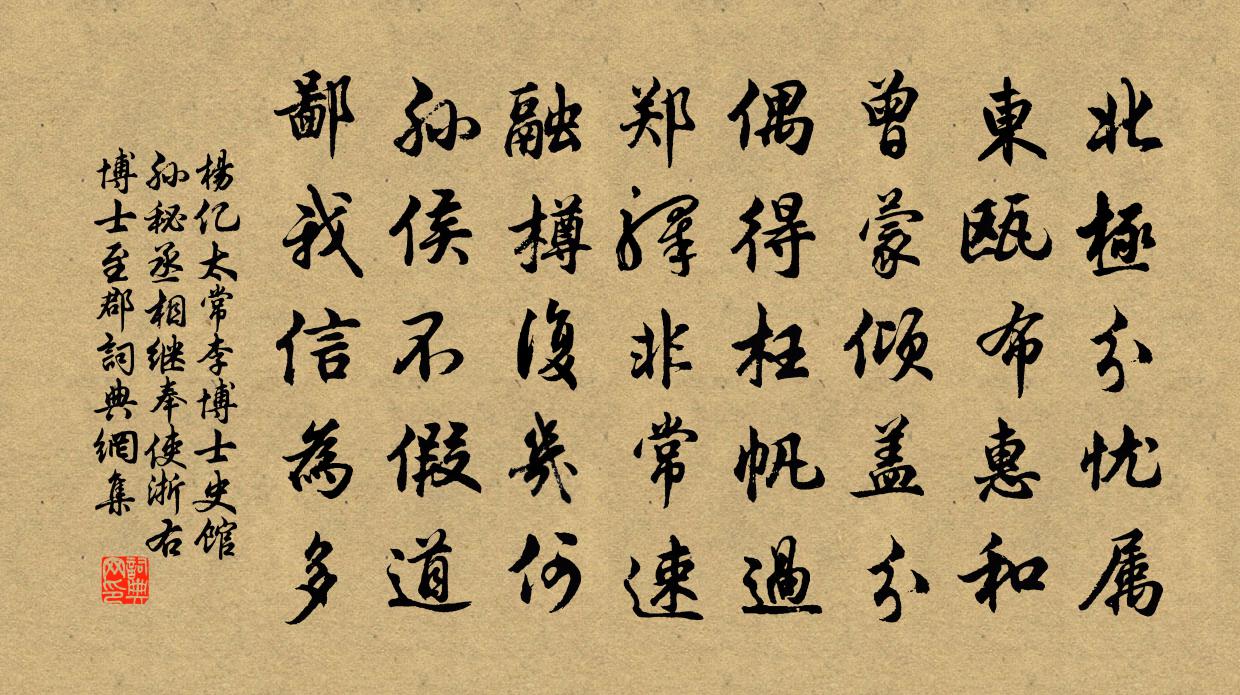 北極分忧属
東瓯布惠和
曾蒙倾盖分
偶得枉帆過
郑驛非常速
融樽復幾何
孙侯不假道
鄙我信為多
楊亿太常李博士史馆
孙秘丞相继奉使浙右
博士至郡詞典網集
詞典网印